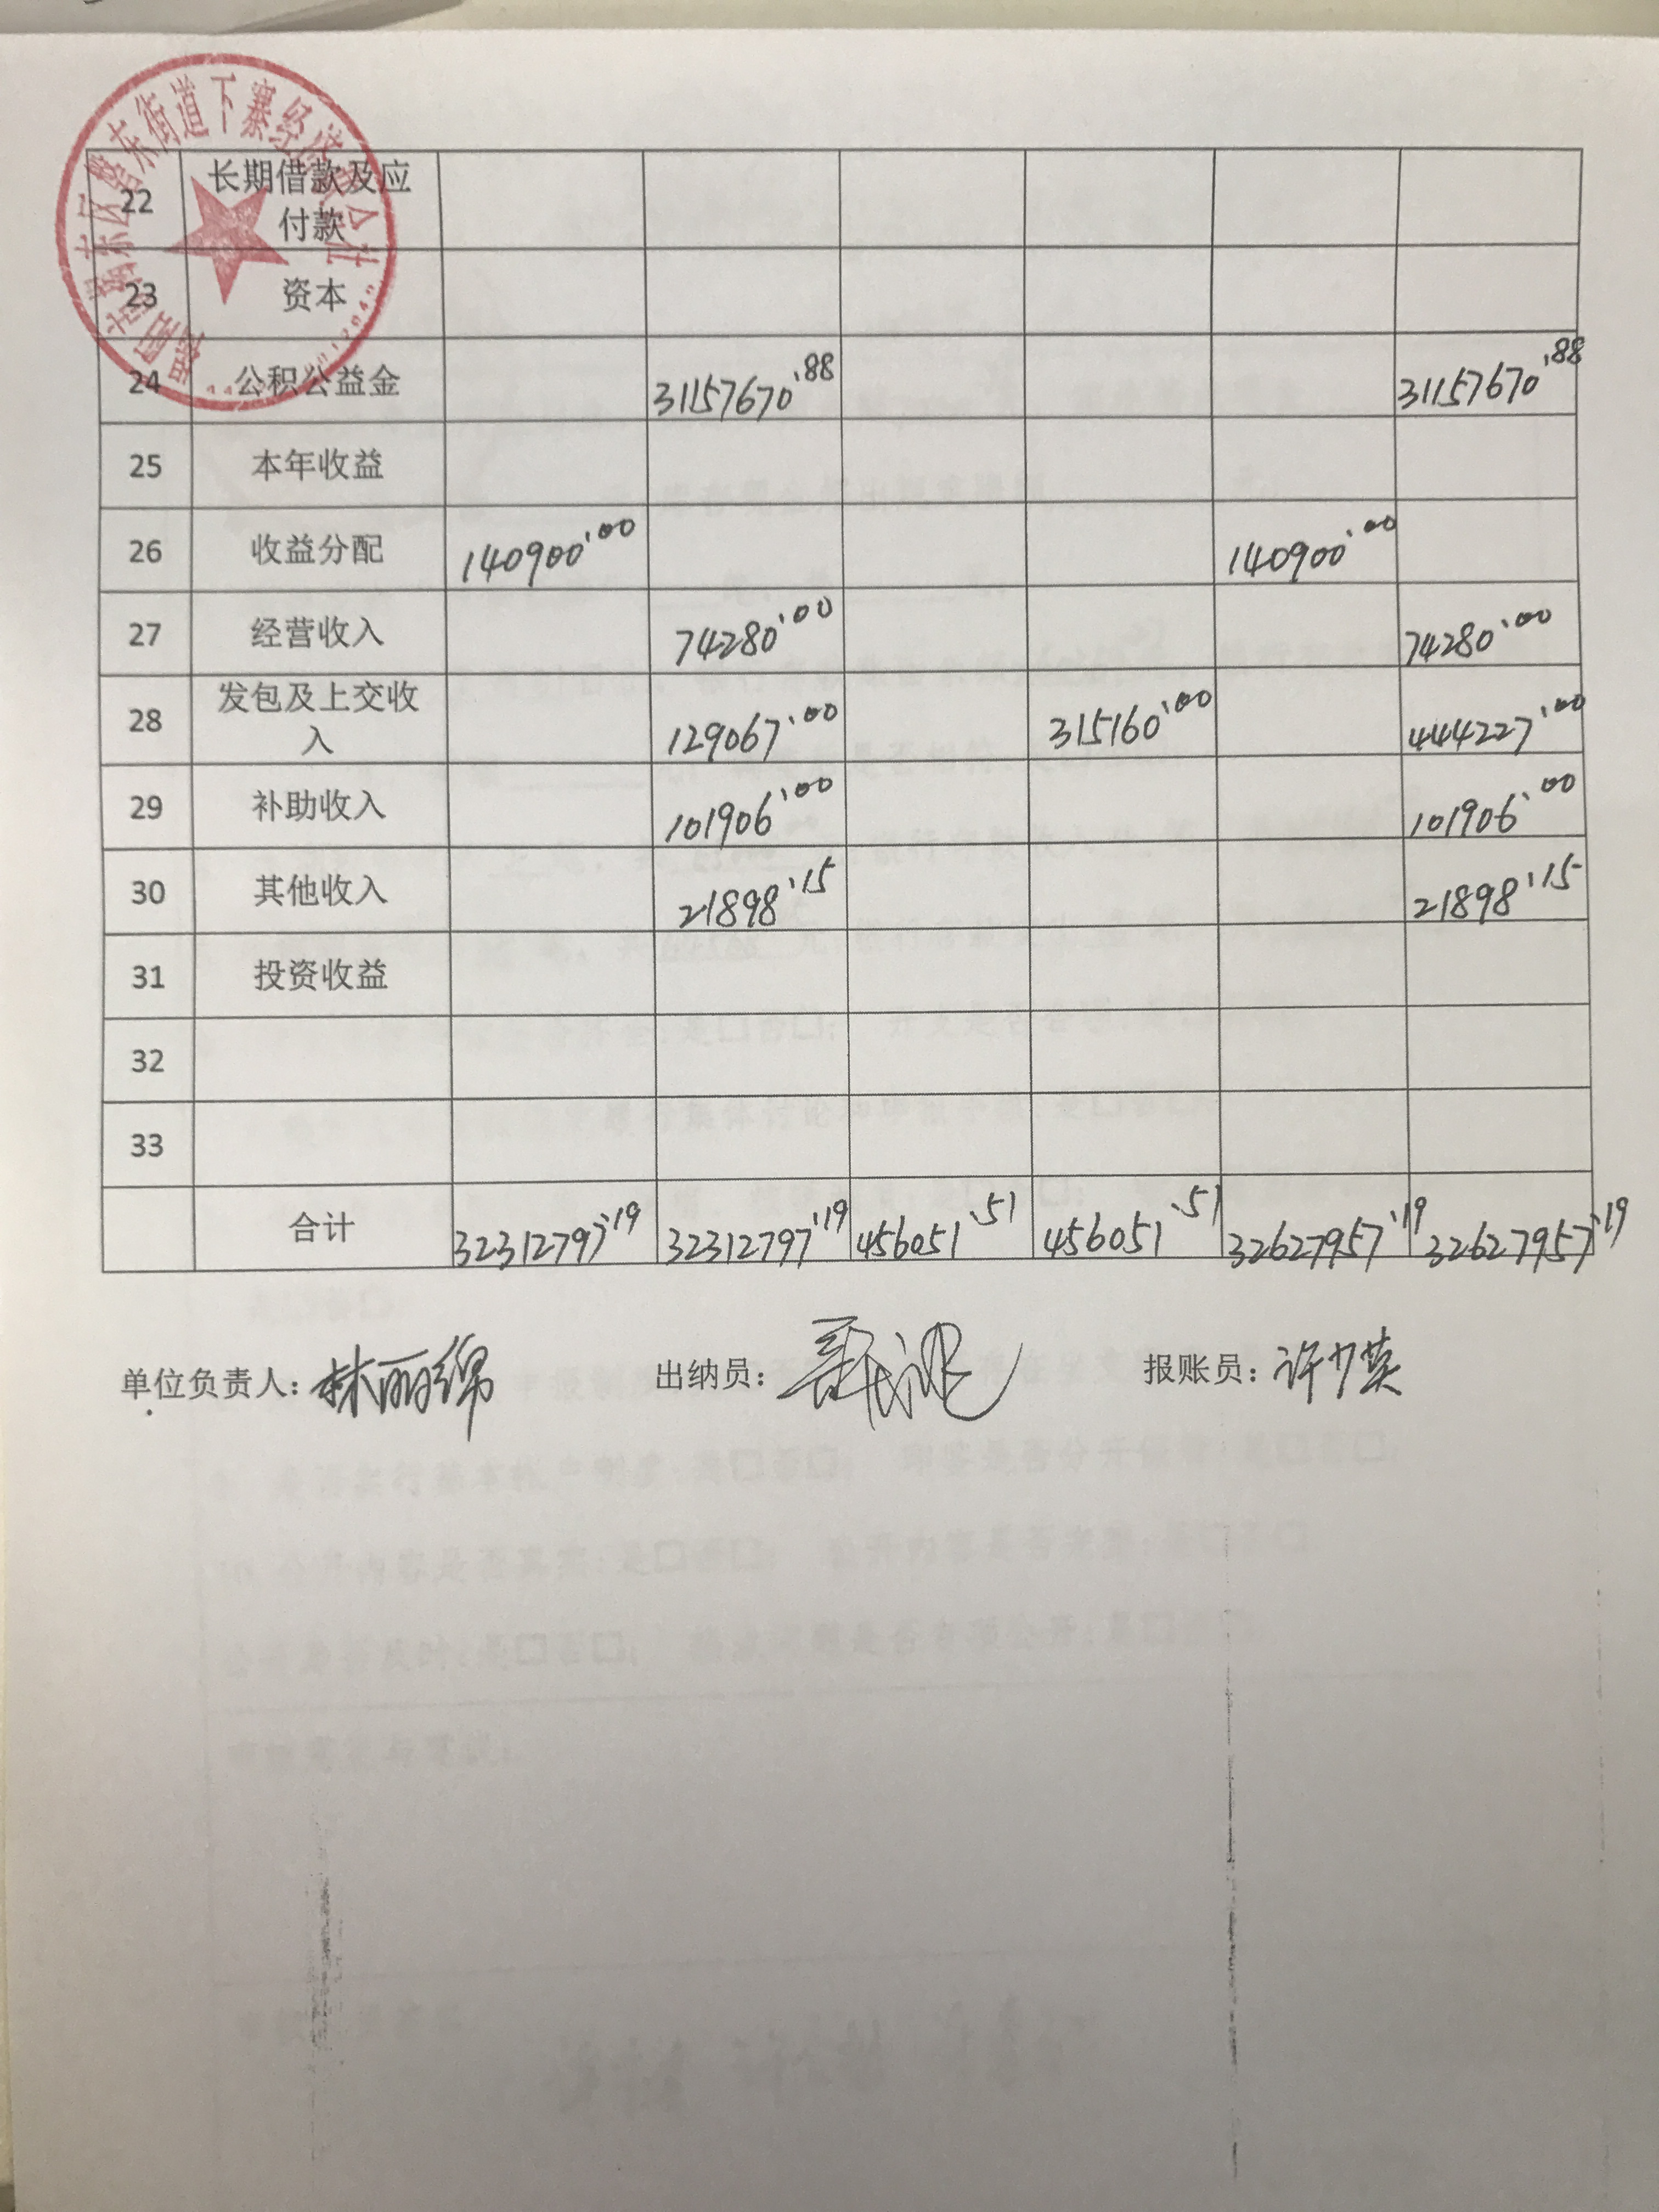 揭阳市揭东区磐东街道下寨经济联合社
22 长期借款及应
付款
23 资本
24 公积公益金 31157670.88 31157670.88
25 本年收益
26 收益分配 140900.00 140900.00
27 经营收入 74280.00 74280.00
28 发包及上交收
入 129067.00 315160.00 444227.00
29 补助收入 101906.00 101906.00
30 其他收入 21898.15 21898.15
31 投资收益
32
33
合计 32312797.19 32312797.19 456051.51 456051.51 32627957.19 32627957.19
单位负责人: 林丽绵 出纳员: 报账员: 许少英